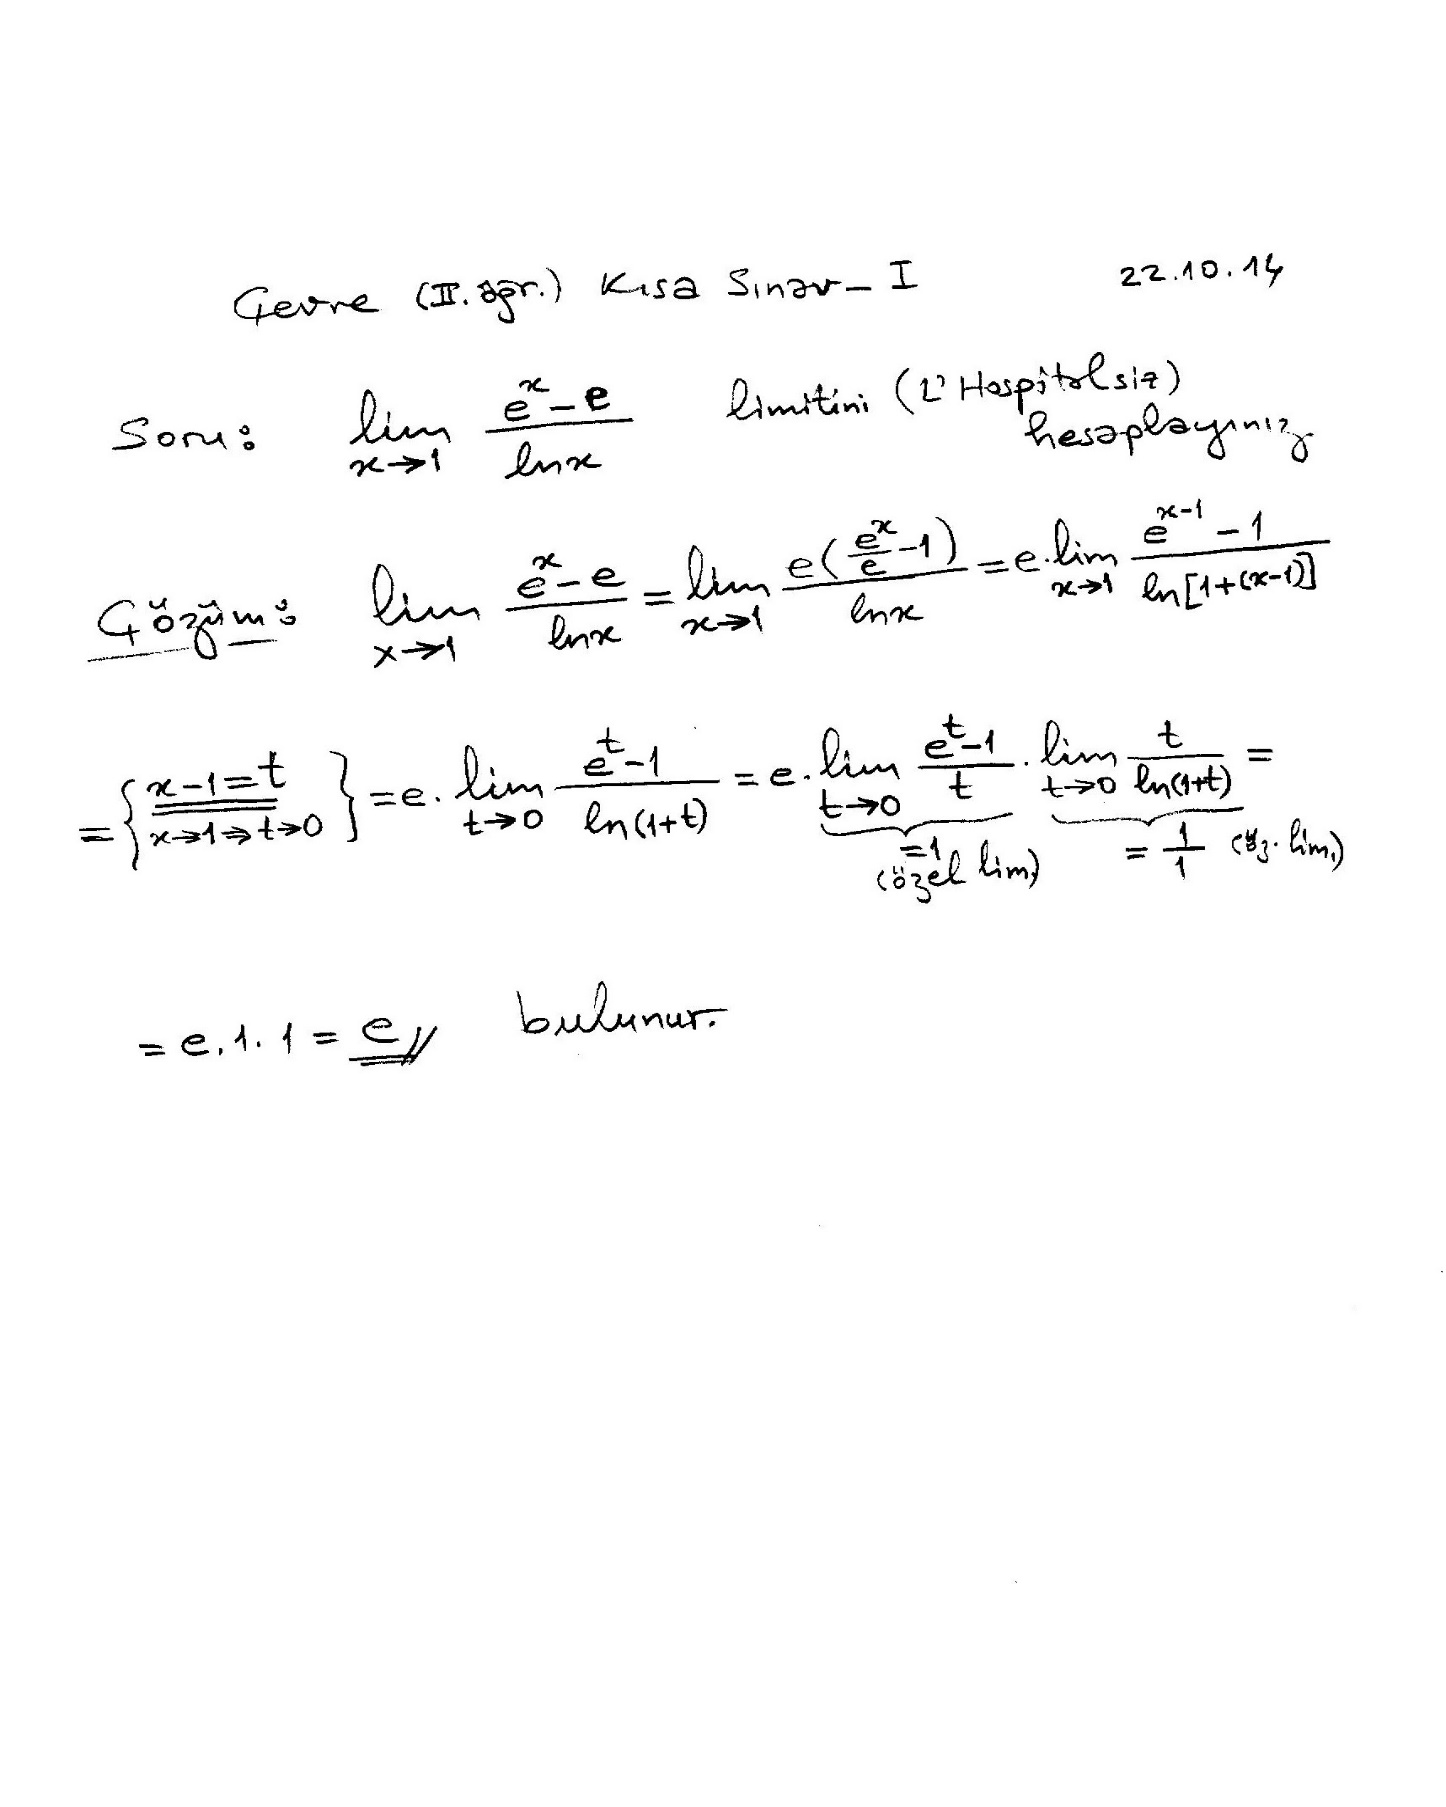 Çevre (II. öğr.) Kısa Sınav – I 22.10.14
Soru: lim_{x→1} (e^x – e)/(ln x) limitini (L'Hospitalsiz)
hesaplayınız
Çözüm: lim_{x→1} (e^x – e)/(ln x) = lim_{x→1} e(e^x/e – 1)/(ln x) = e·lim_{x→1} (e^{x-1} – 1)/(ln[1+(x-1)])
= {x-1=t, x→1⇒t→0} = e. lim_{t→0} (e^t – 1)/(ln(1+t)) = e. lim_{t→0} (e^t – 1)/t . lim_{t→0} t/(ln(1+t)) =
=1 (özel lim.) = 1/1 (öz. lim.)
= e.1.1 = e// bulunur.